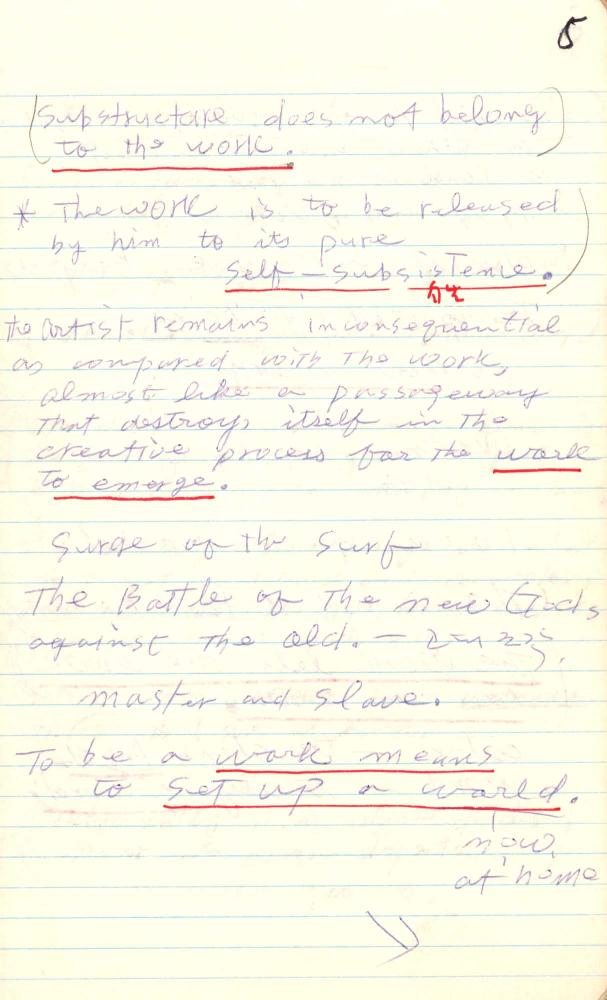 5
(Substructure does not belong
to the work.)
* The work is to be released
by him to its pure
Self-Subsistence.)
the artist remains inconsequential
as compared with the work,
almost like a passageway
that destroys itself in the
creative process for the work
to emerge.
Surge of the Surf
The Battle of the new Gods
against the old. —
master and slave.
To be a work means
to set up a world.
now,
at home